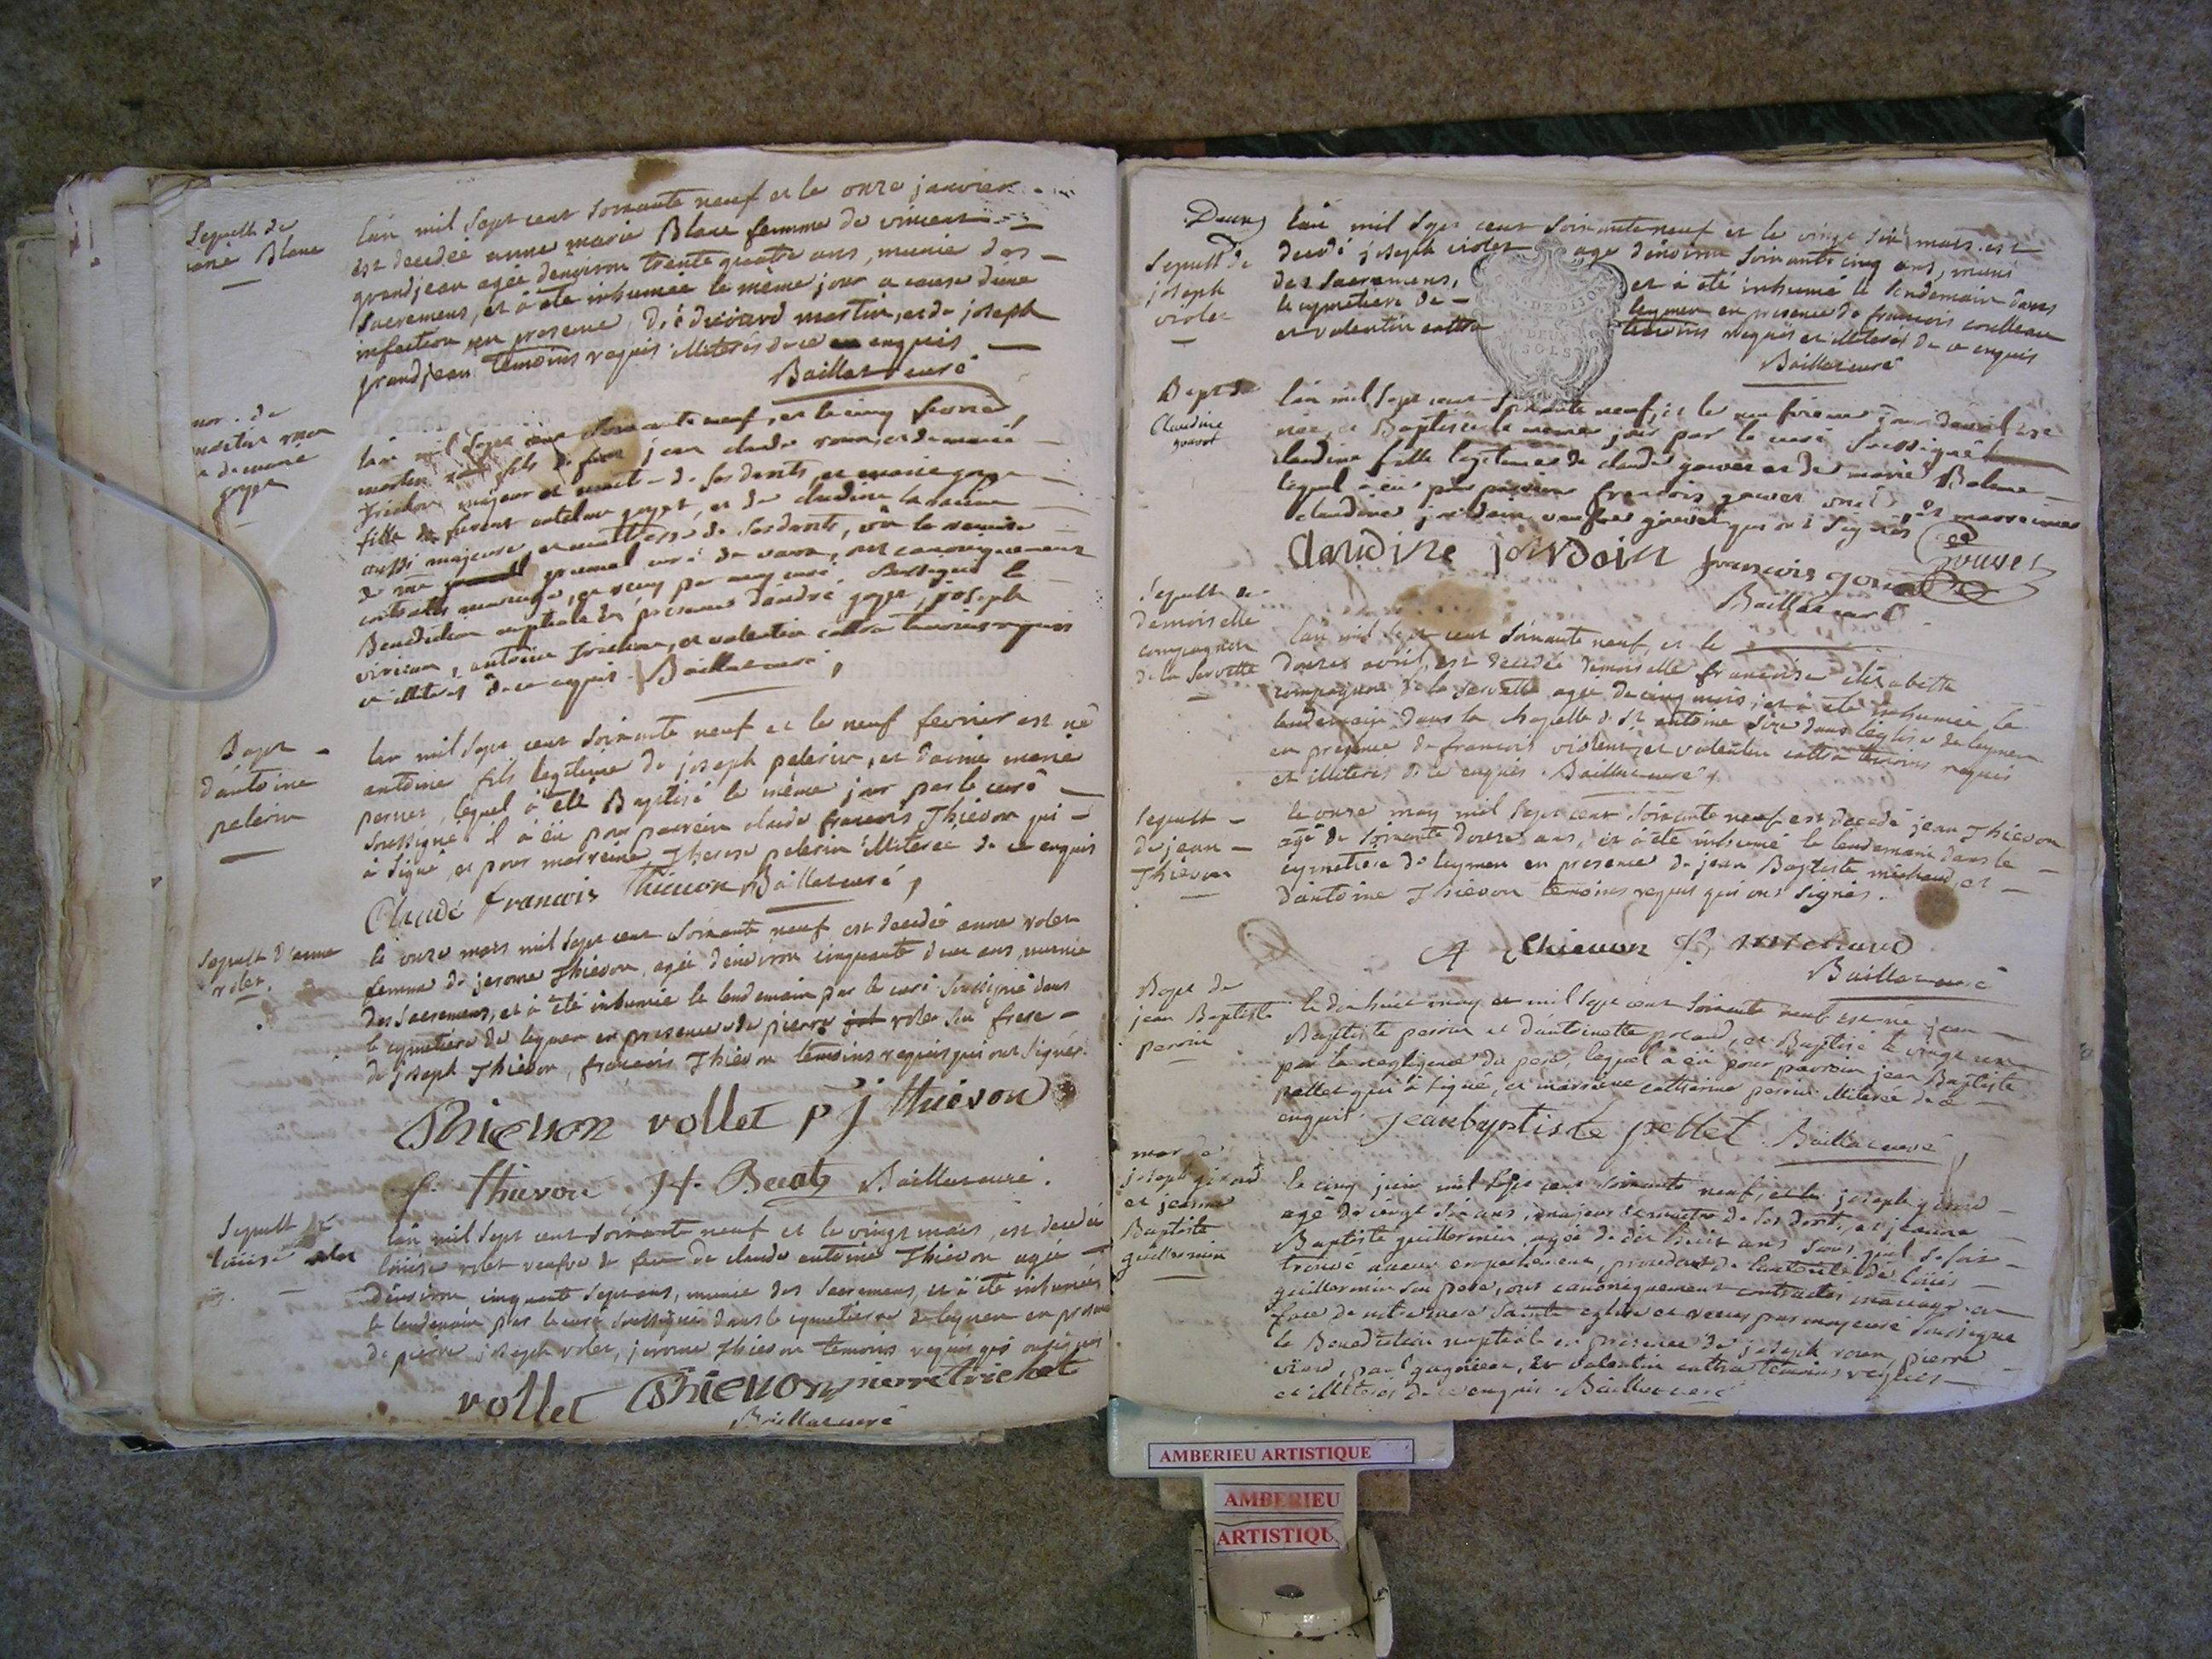 Sepult de
marie Blanc
lan mil sept cent soixante neuf et le onze janvier
est decedée anne marie Blanc femme de vincent
grandjean agée denviron trente quatre ans, munie des
sacremens, et à eté inhumee le même jour a cause dune
infection en presence, martin, et de joseph
grandjean temoins requis illiterés de ce enquis
Baillat curé
mar. de
de marie
goyet
lan mil sept cent soixante neuf, et le cinq fevrier
fils de jean claude et de marie
majeur et maitre de ses droits, et marie goyet
fille de goyet, et de claudine
aussi majeure, et maitresse de ses droits, vû la remise
de curé de vaux, ont canoniquement
contractés mariage, et reçu par moy curé soussigné la
Benediction nuptiale en presence dandré goyet, joseph
antoine et valentin cottra temoins requis
et illiterés de ce enquis. Baillat curé,
Bapt
dantoine
pelerin
lan mil sept cent soixante neuf et le neuf fevrier est né
antoine fils legitime de joseph pelerin, et danne marie
pernet, lequel à eté Baptisé le même jour par le curé
soussigné il à eû pour parrein claude francois Thievon qui
à signé, et pour marreine, Therese pelerin illiterée de ce enquis
Claude francois Thievon Baillat curé,
Sepult danne
volet.
le onze mars mil sept cent soixante neuf est decedée anne volet
femme de jerome Thievon, agée denviron cinquante deux ans, munie
des sacremens, et à eté inhumée le lendemain par le curé soussigné dans
le cymetiere de leymen en presence de pierre volet son frere
de joseph Thievon, francois Thievon temoins requis qui ont signés.
Thievon vollet p j thievon
f. thievon Baillat curé.
Sepult de
louise volet
lan mil sept cent soixante neuf et le vingt mars, est decedée
louise volet veufve de feu de claude antoine Thievon agée
denviron cinquante sept ans, munie des sacremens, et à eté inhumée
le lendemain par le curé soussigné dans le cymetiere de leymen en presence
de pierre joseph volet, jerome Thievon temoins requis qui ont signés
vollet Thievon pierre trichet
Baillat curé
Deux
Sepult de
joseph
violet
lan mil sept cent soixante neuf et le vingt six mars est
decedé joseph violet agé denviron soixante cinq ans, muni
des sacremens, et à eté inhumé le lendemain dans
le cymetiere de leymen en presence de francois
et valentin cottra temoins requis et illiterés de ce enquis
Baillat curé
GEN. DE DIJON
DEUX
SOLS
Bapt de
Claudine
gouvet
lan mil sept cent soixante neuf, et le jour davril est
née, et Baptisée le meme jour par le curé soussigné
claudine fille legitime de claude gouvet et de marie
lequel à eû pour parrein francois gouvet et marreine
claudine jourdain veufve gouvet qui ont signés
Claudine jourdain francois gouvet Gouvet
Baillat curé
Sepult de
demoiselle
compagnon
de la servette
lan mil sept cent soixante neuf, et le
douze avril, est decedée demoiselle francoise elizabette
compagnon de la servette agée de cinq mois, et à eté inhumée le
lendemain dans la chapelle de st antoine size dans leglise de leymen
en presence de francois violet, et valentin cottra temoins requis
et illiterés de ce enquis. Baillat curé,
Sepult
de jean
Thievon
le onze may mil sept cent soixante neuf est decedé jean Thievon
agé de soixante douze ans, et à eté inhumé le lendemain dans le
cymetiere de leymen en presence de jean Baptiste michaud, et
dantoine Thievon temoins requis qui ont signés.
A thievon JB michaud
Baillat curé
Bapt de
jean Baptiste
perrin
le dix huit may mil sept cent soixante neuf est né jean
Baptiste perrin et dantoinette et Baptisé le vingt un
par la negligence du pere, lequel à eû pour parrein jean Baptiste
pellet qui à signé, et marreine catherine perrin illiterée de ce
enquis. jean baptiste pellet Baillat curé
mar de
joseph girard
et jeanne
Baptiste
guillermin
le cinq juin mil sept cent soixante neuf, joseph girard
agé de vingt six ans, majeur et maitre de ses droits, et jeanne
Baptiste guillermin, agée de dix huit ans sans quil se soit
trouvé aucun empechement, procedant de lautorité de louis
guillermin son pere, ont canoniquement contractés mariage en
face de notre mere sainte eglise et reçus par moy curé soussigné
la Benediction nuptiale en presence de joseph pierre
et valentin cottra temoins requis
et illiterés de ce enquis. Baillat curé
AMBERIEU ARTISTIQUE
AMBERIEU
ARTISTIQU